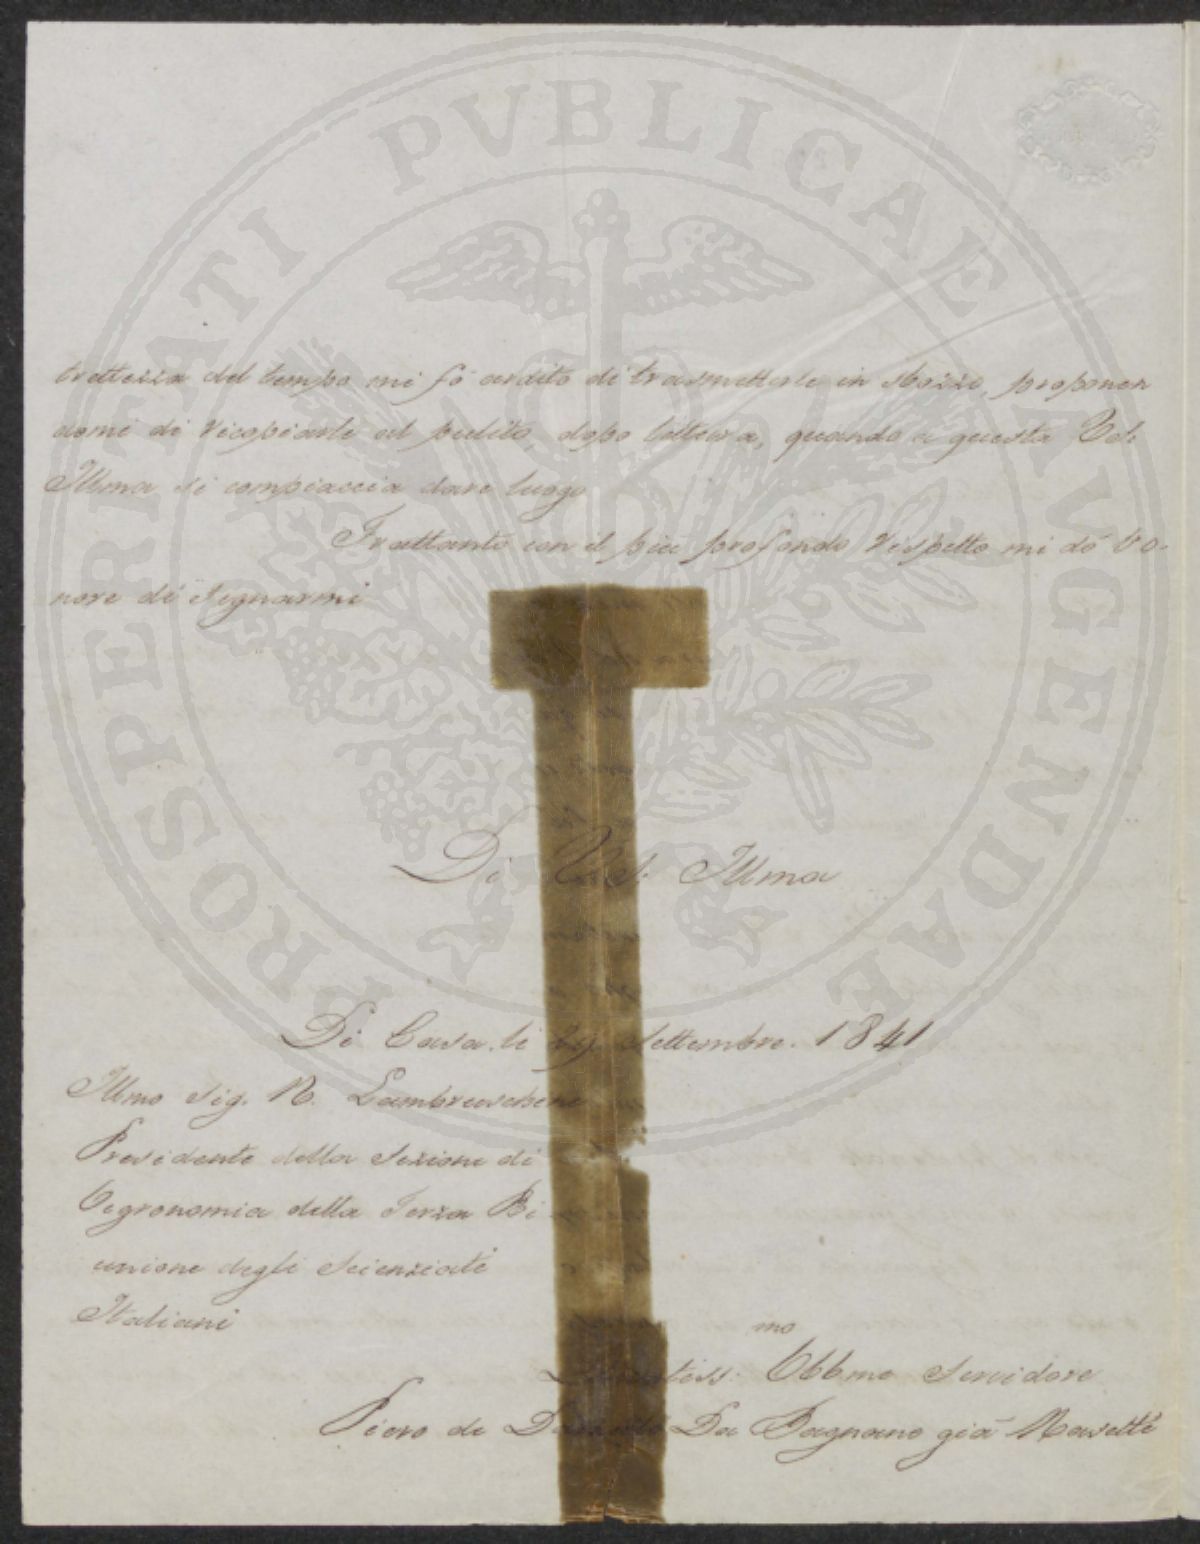 PROSPERITATI PVBLICAE AVGENDAE
trettezza del tempo mi fò ardito di trasmetterle in sbozzo, proponen
domi di ricopiarle al pulito dopo lettura, quando a questa V. S.
Illma si compiaccia dare luogo
Frattanto con il più profondo rispetto mi dò l'o-
nore di segnarmi
Di V. S. Illma
Di Casa. li 29 Settembre. 1841
Illmo Sig. R. Lambruschini
Presidente della Sezione di
Agronomia della Terza Ri
unione degli Scienziati
Italiani
mo
Obbmo Servidore
Piero de Da Bagnano già Masetti